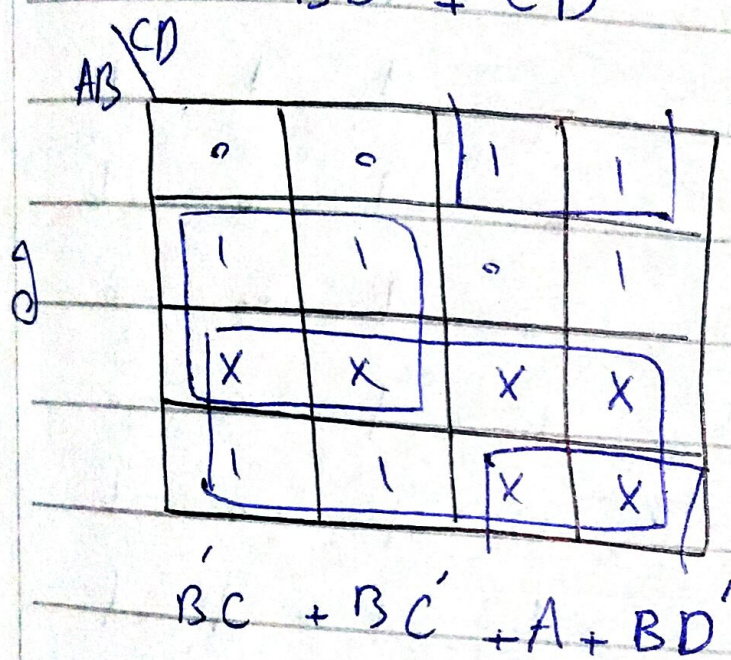 + CD
CD
AB
0 0 1 1
g
1 1 0 1
X X X X
1 1 X X
B'C + BC' + A + BD'